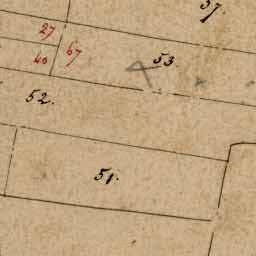 57.
27
67
53
40
52.
51.